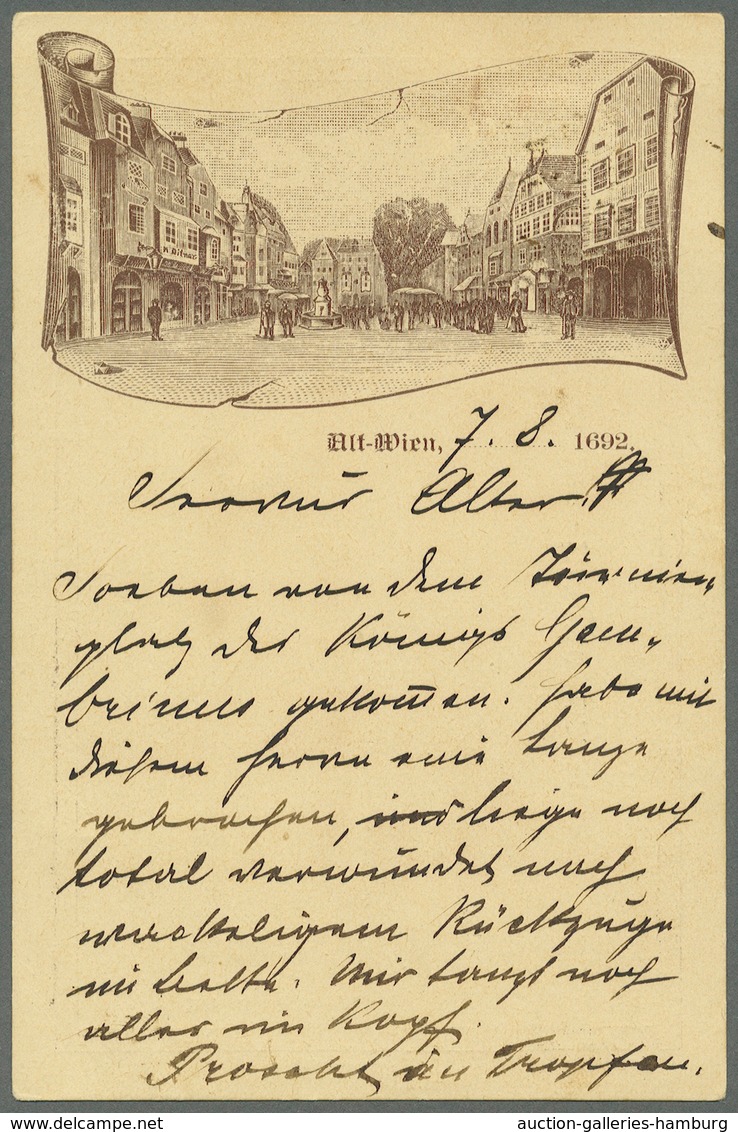 Alt-Wien, 7. 8. 1692.
Servus Alter!
Soeben von dem Turnier-
platz des Königs Gam-
brinus gekommen. Habe mit
diesem Herrn eine Lanze
gebrochen, und liege noch
total verwundet nach
wackeligem Rückzuge
im Bette. Mir tanzt noch
alles im Kopf.
Prosekt du Tropfen.
auction-galleries-hamburg